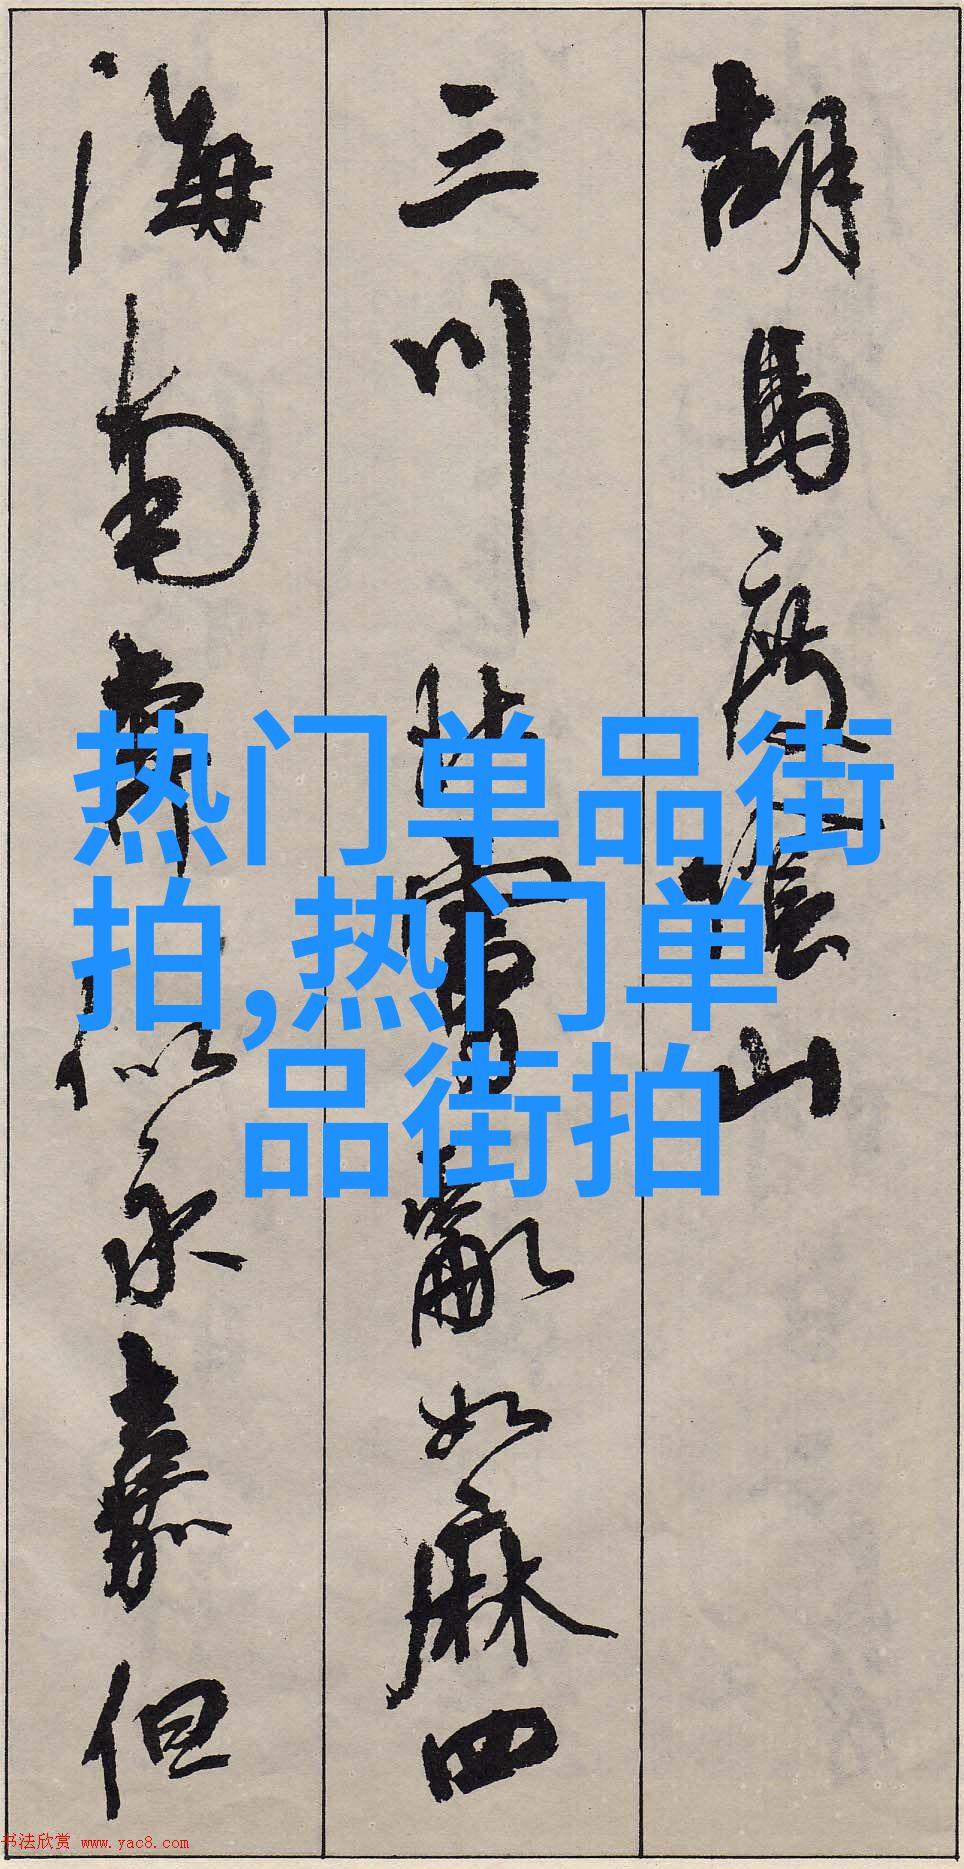 胡马度阴山
三川北虏乱如麻四
海南奔似永嘉但
热门单品街
拍,热门单
品街拍
书法欣赏 www.yac8.com